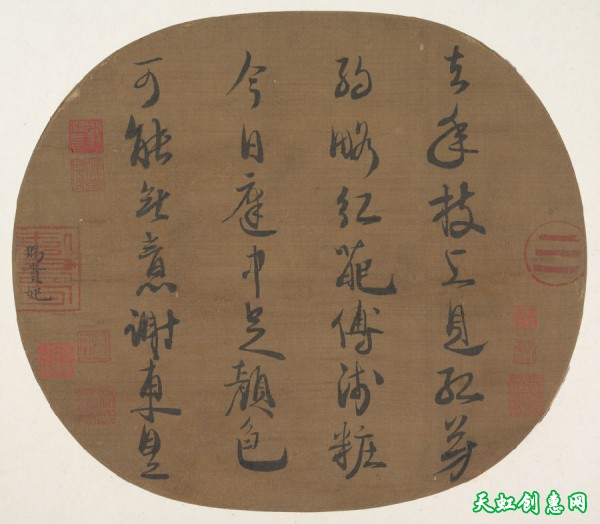 去年枝上見紅芳
約略紅葩傅淺粧
今日庭中足顔色
可能無意謝東皇
賜貴妃
天虹创惠网